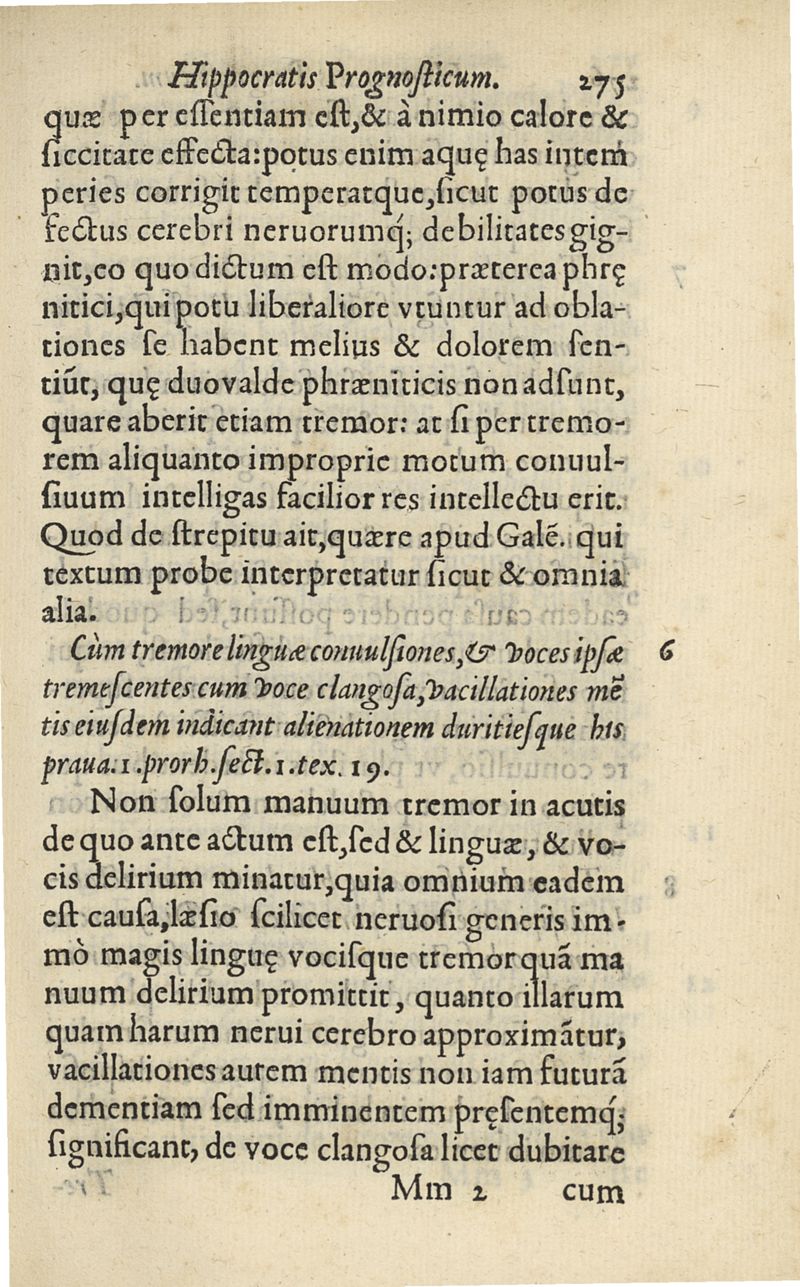 Hippocratis Prognosticum. 275
quæ per eſſentiam eſt,& à nimio calore &
ſiccitate effecta:potus enim aquę has intem
peries corrigit temperatque,ſicut potus de
fectus cerebri neruorumq́; debilitates gig-
nit,eo quo dictum eſt modo:præterea phrę
nitici,qui potu liberaliore vtuntur ad obla-
tiones ſe habent melius & dolorem ſen-
tiũt, quę duo valde phræniticis non adſunt,
quare aberit etiam tremor: at ſi per tremo-
rem aliquanto improprie motum conuul-
ſiuum intelligas facilior res intellectu erit.
Quod de ſtrepitu ait,quære apud Galẽ. qui
textum probe interpretatur ſicut & omnia
alia.
Cùm tremore linguæ conuulſiones,& voces ipſæ 6
tremeſcentes cum voce clangoſa,vacillationes mẽ
tis eiuſdem indicant alienationem duritieſque his
praua.1.prorh.ſect.1.tex.19.
Non ſolum manuum tremor in acutis
de quo ante actum eſt,ſed & linguæ, & vo-
cis delirium minatur,quia omnium eadem
eſt cauſa,læſio ſcilicet neruoſi generis im-
mò magis linguę vociſque tremor quã ma
nuum delirium promittit, quanto illarum
quam harum nerui cerebro approximãtur,
vacillationes autem mentis non iam futurã
dementiam ſed imminentem pręſentemq́;
ſignificant, de voce clangoſa licet dubitare
Mm 2 cum